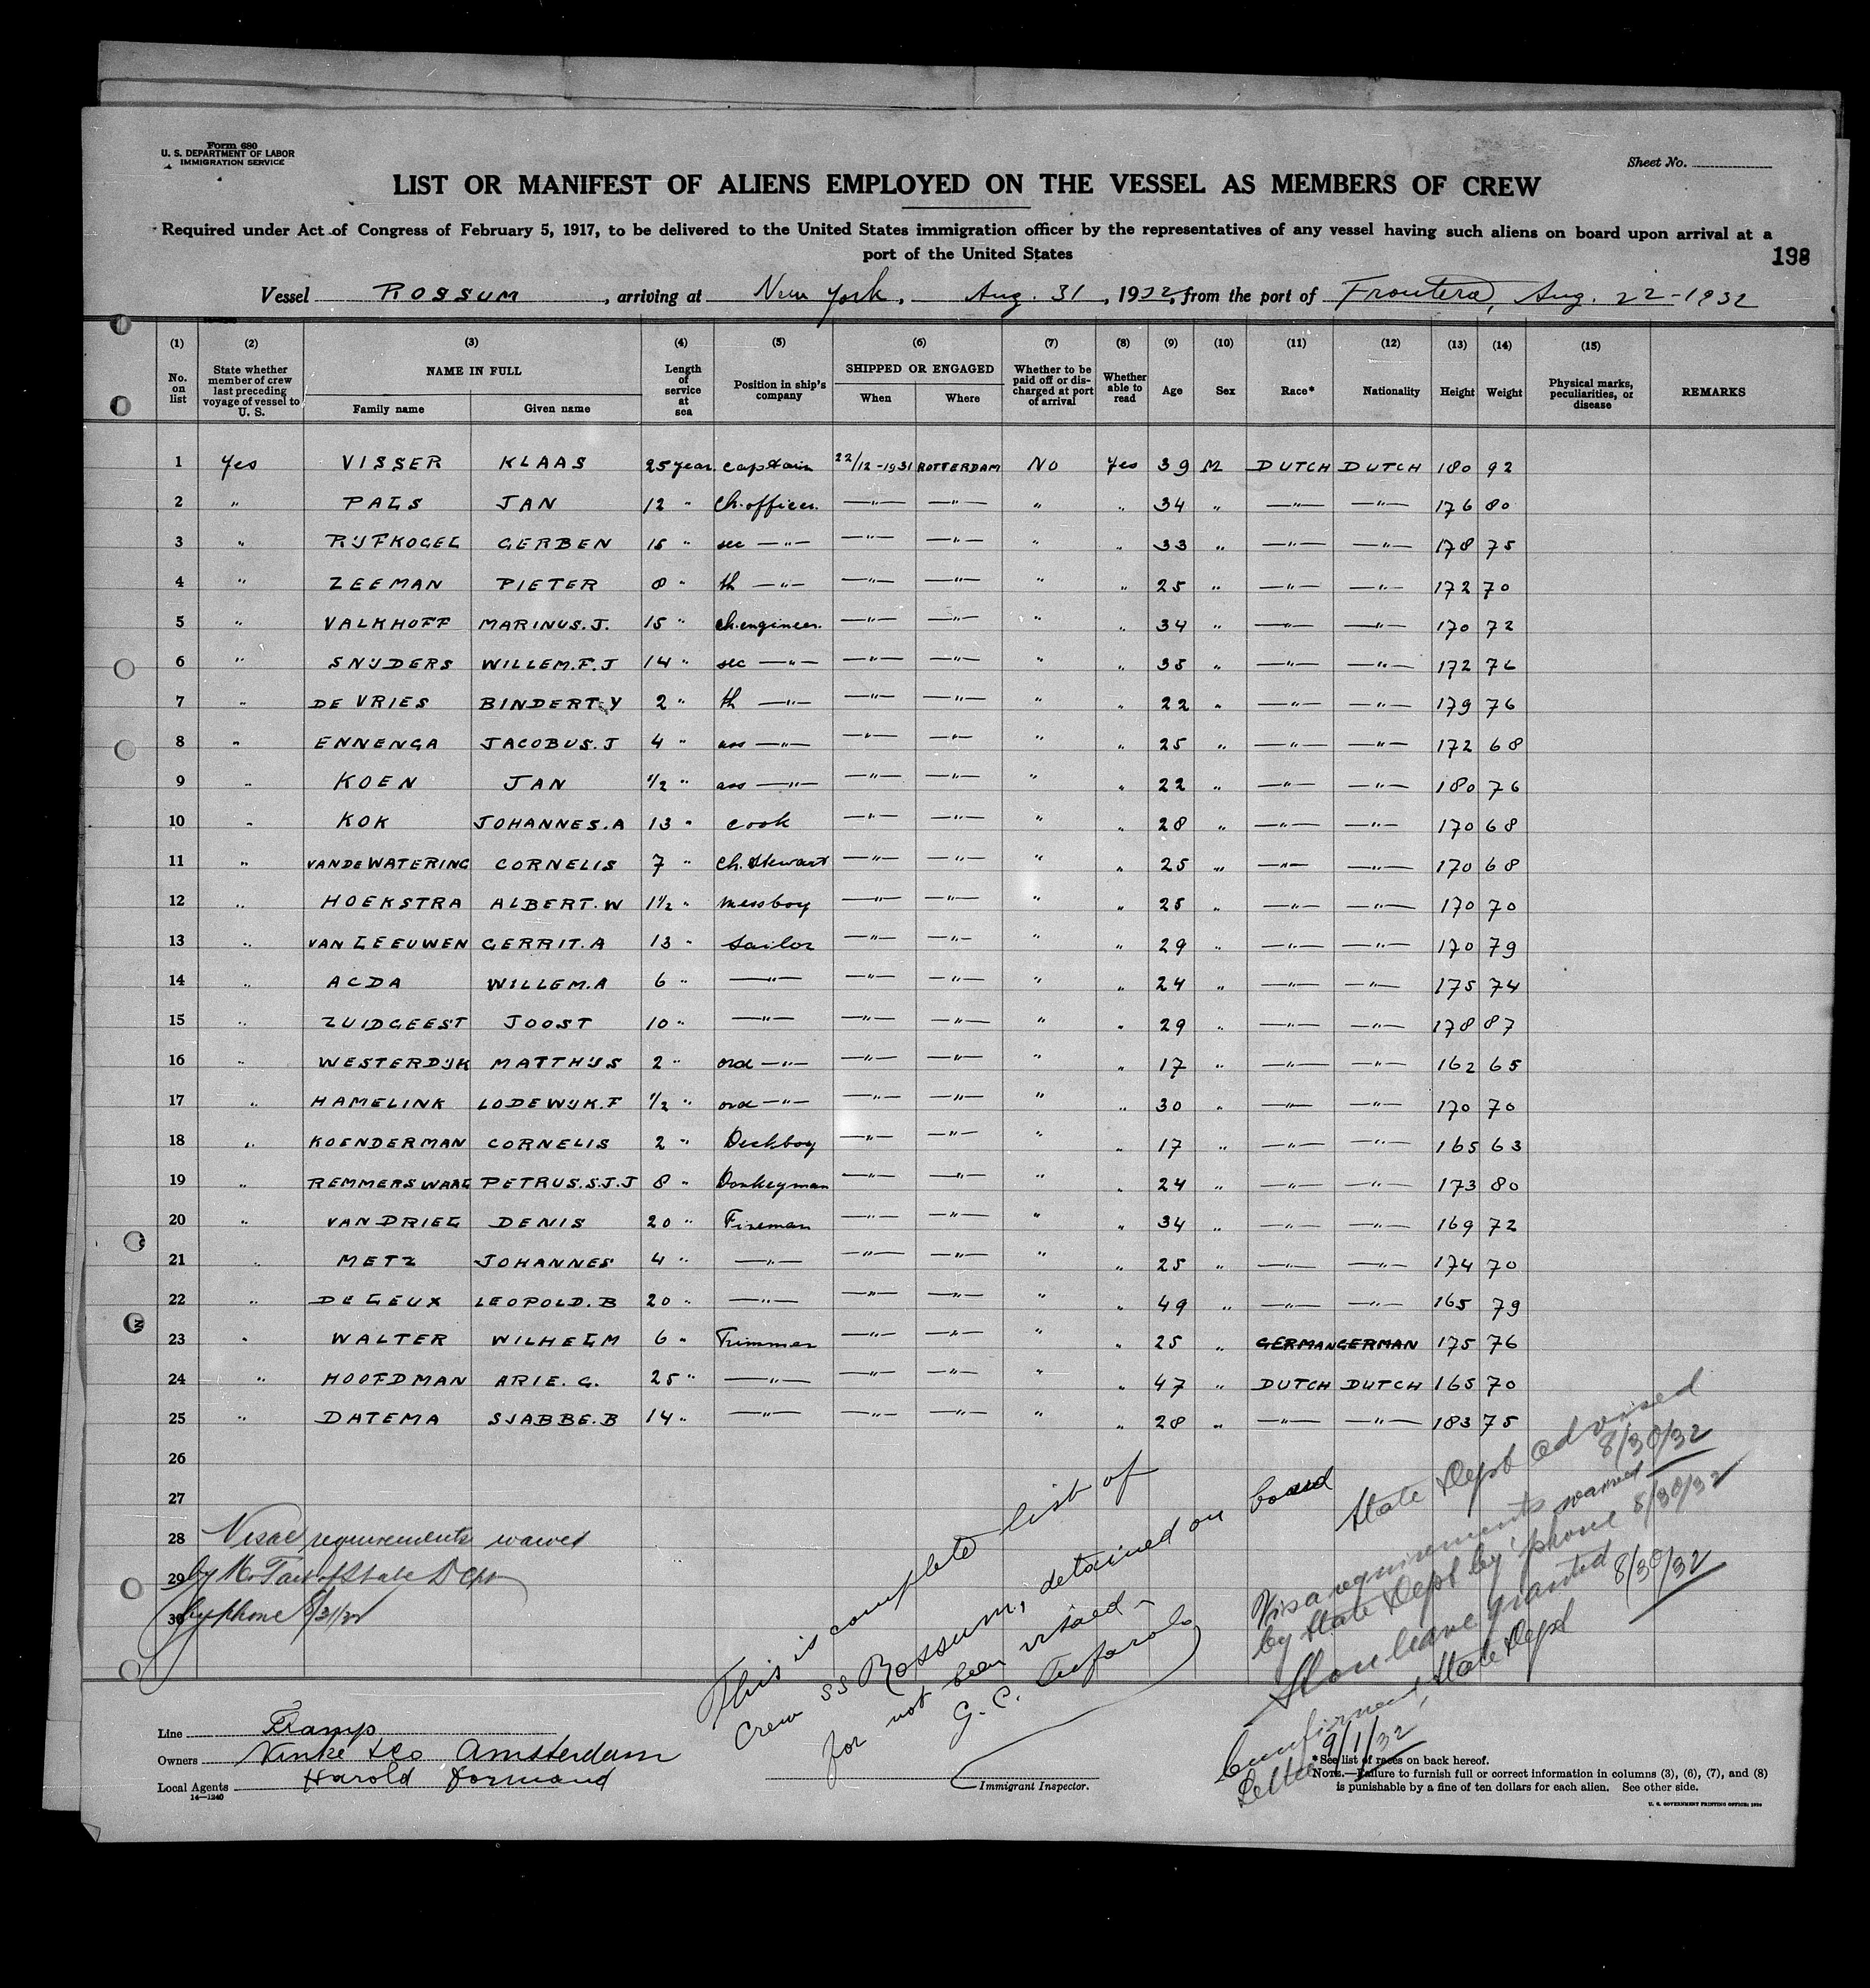 Form 680
U. S. DEPARTMENT OF LABOR
IMMIGRATION SERVICE
Sheet No.
LIST OR MANIFEST OF ALIENS EMPLOYED ON THE VESSEL AS MEMBERS OF CREW
Required under Act of Congress of February 5, 1917, to be delivered to the United States immigration officer by the representatives of any vessel having such aliens on board upon arrival at a
port of the United States
198
Vessel ROSSUM, arriving at New York, Aug. 31, 1932, from the port of Frontera, Aug. 22-1932
(1) (2) (3) (4) (5) (6) (7) (8) (9) (10) (11) (12) (13) (14) (15)
No. on list
State whether member of crew last preceding voyage of vessel to U. S.
NAME IN FULL
Family name Given name
Length of service at sea
Position in ship's company
SHIPPED OR ENGAGED
When Where
Whether to be paid off or discharged at port of arrival
Whether able to read
Age Sex Race* Nationality Height Weight
Physical marks, peculiarities, or disease
REMARKS
1 Yes VISSER KLAAS 25 year captain 22/12-1931 ROTTERDAM NO Yes 39 M DUTCH DUTCH 180 92
2 " PALS JAN 12 " Ch. officer. —"— —"— " " 34 " —"— —"— 176 80
3 " RIJFKOGEL GERBEN 15 " sec —"— —"— —"— " " 33 " —"— —"— 178 75
4 " ZEEMAN PIETER 8 " th —"— —"— —"— " " 25 " —"— —"— 172 70
5 " VALKHOFF MARINUS.J. 15 " ch.engineer. —"— —"— " " 34 " —"— —"— 170 72
6 " SNIJDERS WILLEM.F.J 14 " sec —"— —"— —"— " " 35 " —"— —"— 172 76
7 " DE VRIES BINDERT.Y 2 " th —"— —"— —"— " " 22 " —"— —"— 179 76
8 " ENNENGA JACOBUS.J 4 " ass —"— —"— —"— " " 25 " —"— —"— 172 68
9 " KOEN JAN 1/2 " ass —"— —"— —"— " " 22 " —"— —"— 180 76
10 " KOK JOHANNES.A 13 " cook —"— —"— " " 28 " —"— —"— 170 68
11 " VAN DE WATERING CORNELIS 7 " Ch. Stewart —"— —"— " " 25 " —"— —"— 170 68
12 " HOEKSTRA ALBERT.W 1 1/2 " messboy —"— —"— " " 25 " —"— —"— 170 70
13 " VAN LEEUWEN GERRIT.A 13 " sailor —"— —"— " " 29 " —"— —"— 170 79
14 " ACDA WILLEM.A 6 " —"— —"— —"— " " 24 " —"— —"— 175 74
15 " ZUIDGEEST JOOST 10 " —"— —"— —"— " " 29 " —"— —"— 178 87
16 " WESTERDIJK MATTHIJS 2 " ord —"— —"— —"— " " 17 " —"— —"— 162 65
17 " HAMELINK LODEWIJK.F 1/2 " ord —"— —"— —"— " " 30 " —"— —"— 170 70
18 " KOENDERMAN CORNELIS 2 " Deckboy —"— —"— " " 17 " —"— —"— 165 63
19 " REMMERSWAAL PETRUS.S.J.J 8 " Donkeyman —"— —"— " " 24 " —"— —"— 173 80
20 " VAN DRIEL DENIS 20 " Fireman —"— —"— " " 34 " —"— —"— 169 72
21 " METZ JOHANNES 4 " —"— —"— —"— " " 25 " —"— —"— 174 70
22 " DE GEUX LEOPOLD.B 20 " —"— —"— —"— " " 49 " —"— —"— 165 79
23 " WALTER WILHELM 6 " Trimmer —"— —"— " " 25 " GERMAN GERMAN 175 76
24 " HOOFDMAN ARIE. G. 25 " —"— —"— —"— " " 47 " DUTCH DUTCH 165 70
25 " DATEMA SJABBE.B 14 " —"— —"— —"— " " 28 " —"— —"— 183 75
26
27
28
29
30
Visae requirements waived
by Mr of State Dept
by phone 8/31/32
This is complete list of
crew SS Rossum, detained on board
for not been visaed -
G. C.
State Dept advised
8/30/32
Visa requirements waived
by State Dept by 'phone 8/30/32
Shore leave granted 8/30/32
Confirmed, State Dept
Letter 9/1/32
Line Tramp
Owners Vinke & Co Amsterdam
Local Agents Harold Dormand
14—1240
Immigrant Inspector.
*See list of races on back hereof.
NOTE.—Failure to furnish full or correct information in columns (3), (6), (7), and (8)
is punishable by a fine of ten dollars for each alien. See other side.
U. S. GOVERNMENT PRINTING OFFICE: 1930